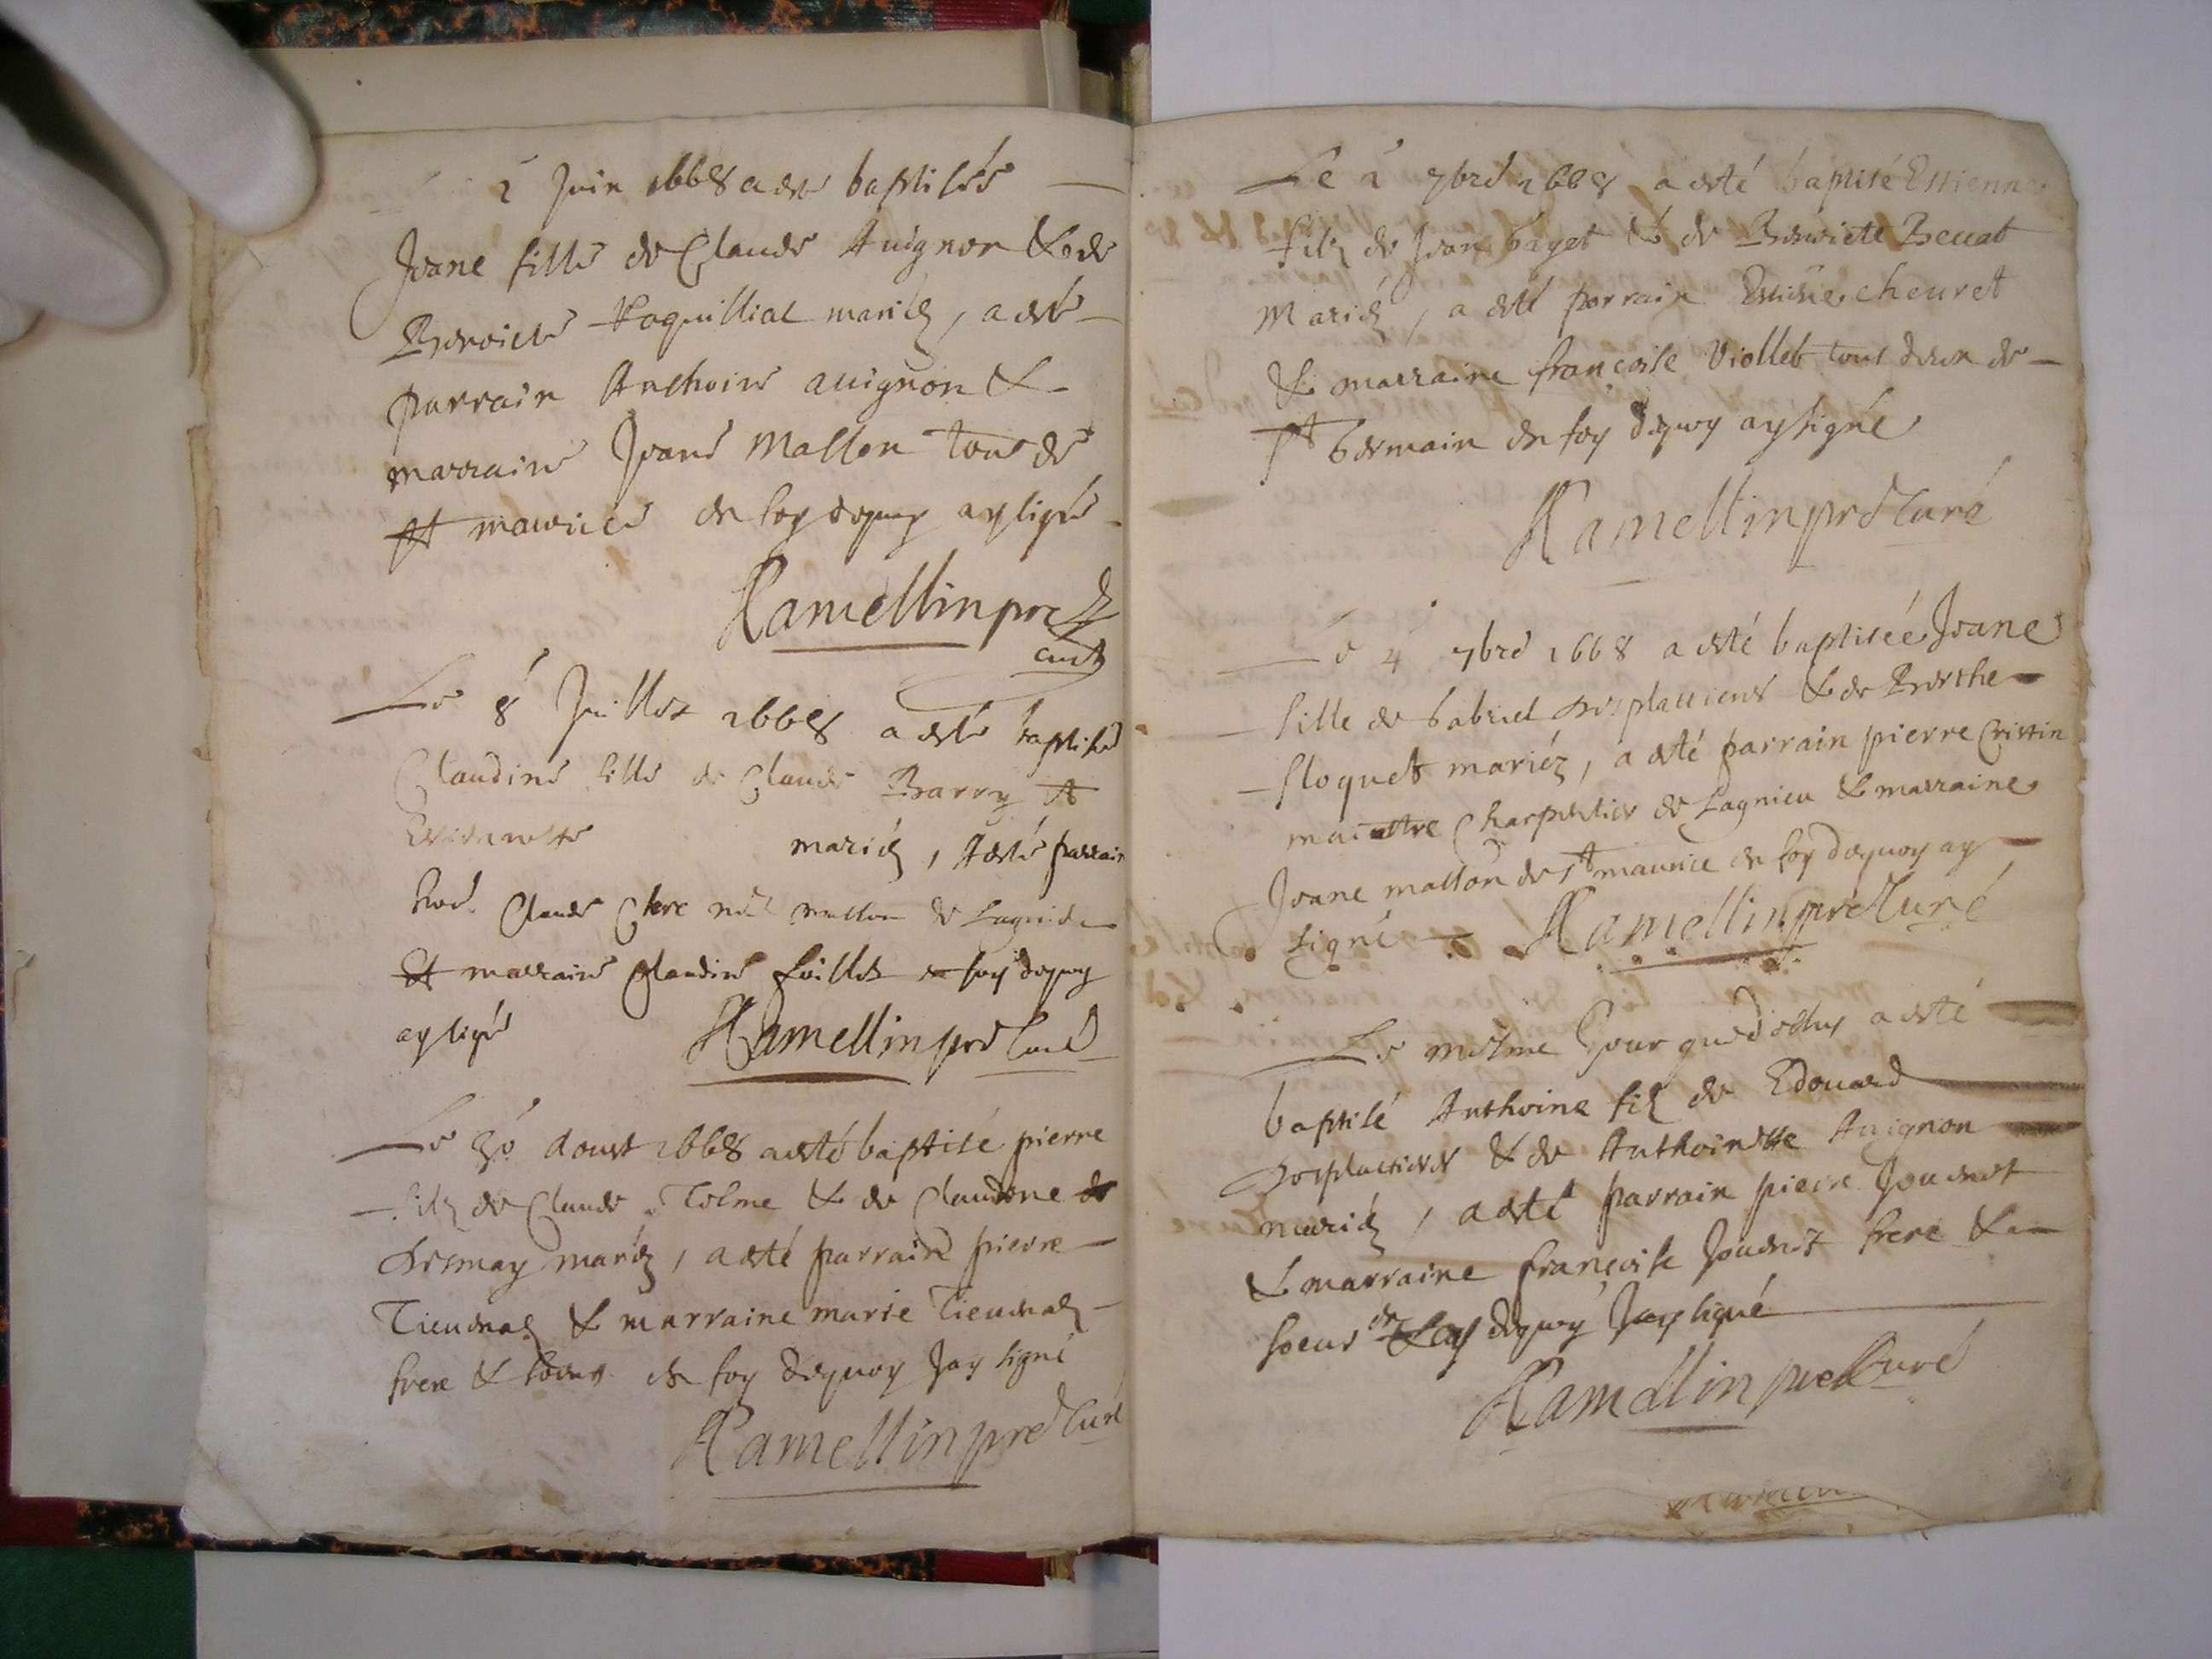 2 Juin 1668 a esté baptisée
Jeane fille de Claude Avignon & de
Benoiste maries, a esté
parrain Anthoine avignon &
marraine Jeane Mallon tous de
St maurice en foy dequoy ay signé
Ramellin pre
curé
Le 8 Juillet 1668 a esté baptisé
Claudine fille de Claude Barry et
Estiennette mariés, A esté parrain
hon. Claude Clerc de Lagnieu
et marraine Claudine en foy dequoy
ay signé Ramellin pre Curé
Le 30 Aoust 1668 a esté baptisé pierre
filz de Claude Tolme & de Claudine de
Desmay mariez, a esté parrain pierre
Tieuenas & marraine marie Tieuenas
frere & soeur en foy dequoy Jay signé
Ramellin pre Curé
Le 2 7bre 1668 a esté baptisé Estienne
filz de Jean bayet & de Benoiste Beuat
Mariez, a esté parrain Estiene cheuret
& marraine françoise Viollet tous deux de
St Germain en foy dequoy ay signé
Ramellin pre Curé
Le 4 7bre 1668 a esté baptisée Jeane
fille de Gabriel Desplattieres & de Berthe
floquet mariéz, a esté parrain pierre Cristin
maistre Charpentier de Lagnieu & marraine
Jeane mallon de St maurice en foy dequoy ay
signé Ramellin pre Curé
Le mesme Jour que dessus a esté
baptisé Anthoine filz de Edouard
Desplattieres & de Anthoinette Avignon
mariez, a esté parrain pierre Jouenet
& marraine françoise Jouenet frere &
soeur en foy dequoy Jay signé
Ramellin pre Curé